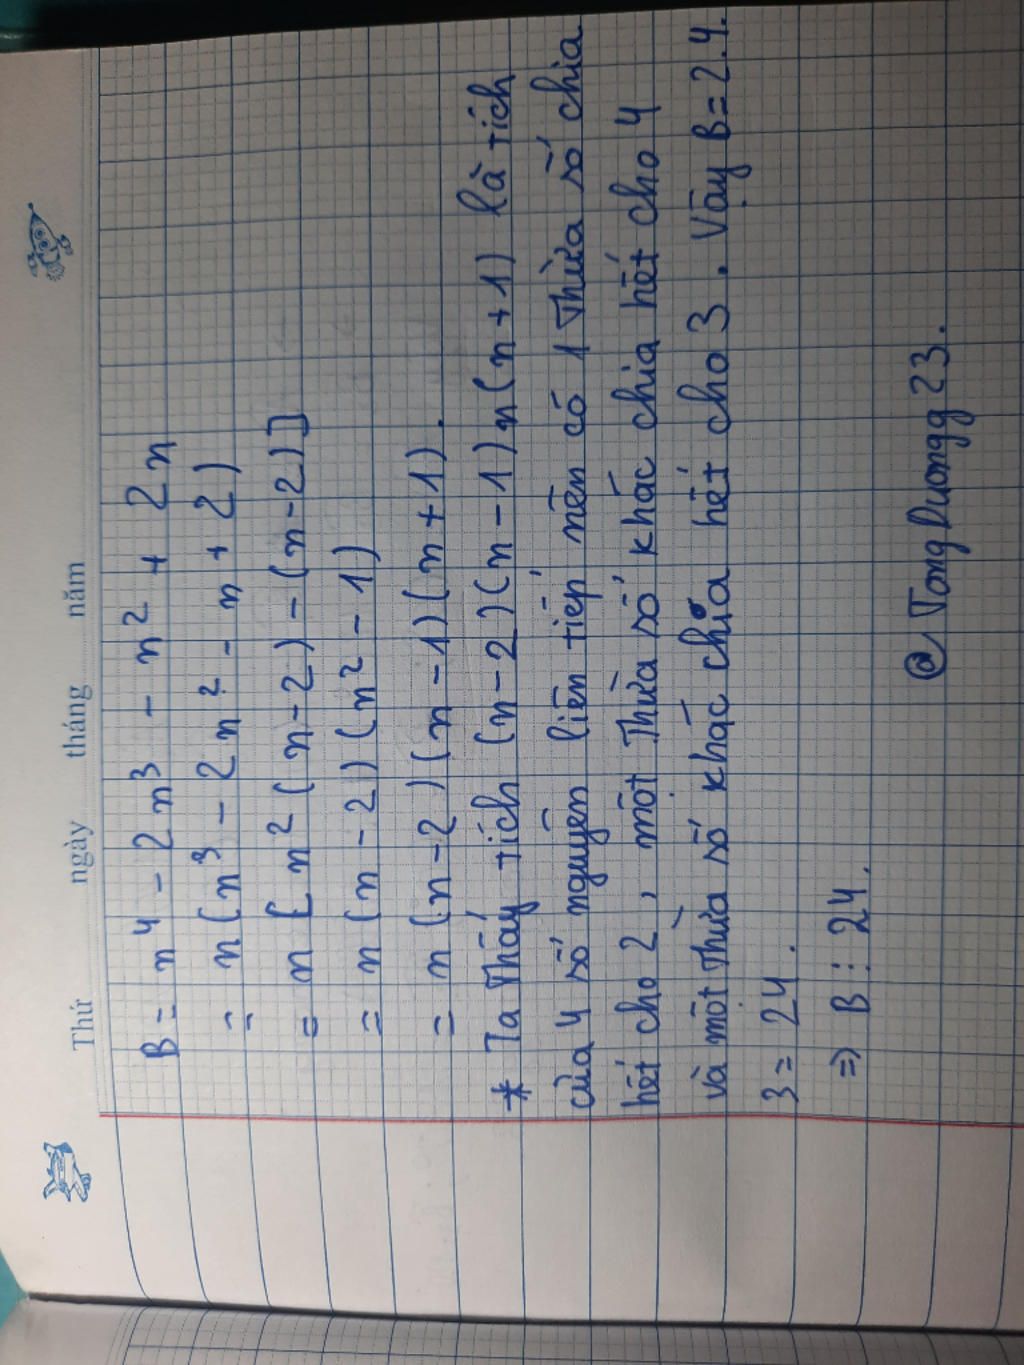 Thứ ngày tháng năm
B = n⁴ - 2n³ - n² + 2n
= n(n³ - 2n² - n + 2)
= n[n²(n-2) - (n-2)]
= n(n-2)(n²-1)
= n(n-2)(n-1)(n+1).
* Ta thấy tích (n-2)(n-1)n(n+1) là tích
của 4 số nguyên liên tiếp nên có 1 thừa số chia
hết cho 2, một thừa số khác chia hết cho 4
và một thừa số khác chia hết cho 3. Vậy B = 2.4.
3 = 24.
=> B ⋮ 24.
@TongDuongg23.